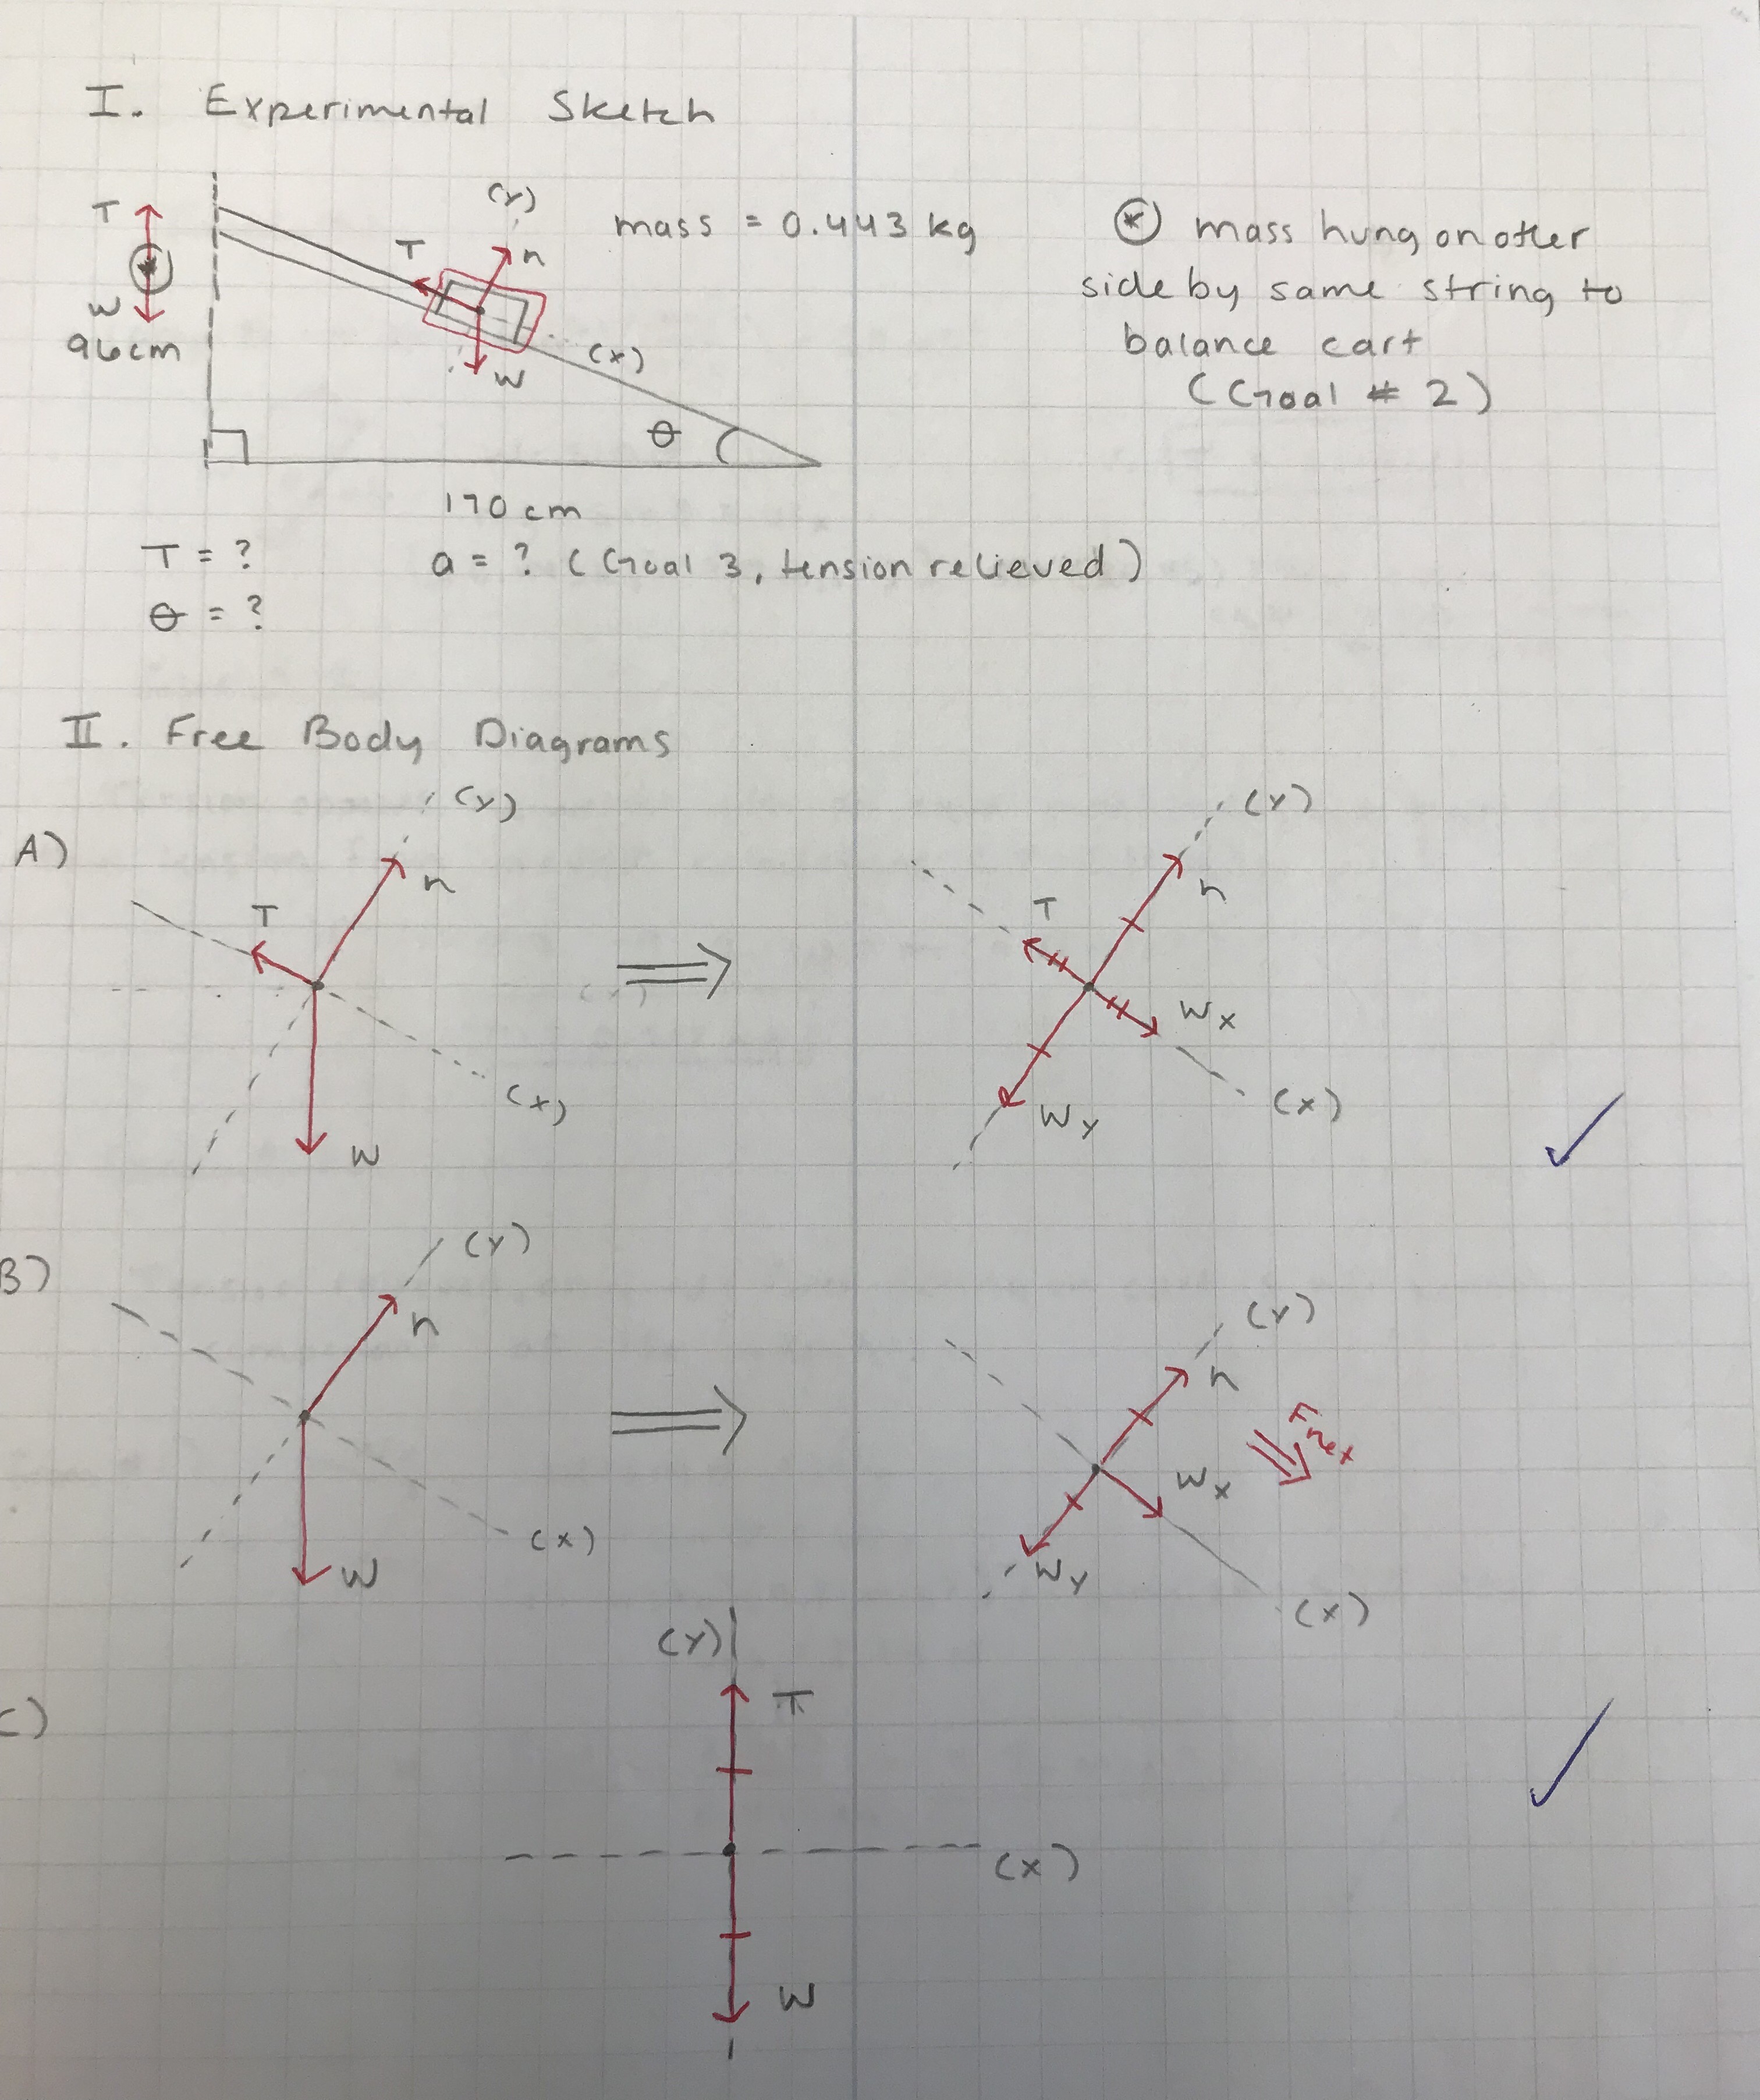 I. Experimental Sketch
(y)
T
T
n
mass = 0.443 kg
* mass hung on other
side by same string to
balance cart
(Goal # 2)
W
96cm
W
(x)
θ
170 cm
T = ?
a = ? (Goal 3, tension relieved)
θ = ?
II. Free Body Diagrams
A)
(y)
n
T
(x)
W
(y)
n
T
Wx
Wy
(x)
B)
(y)
n
(x)
W
(y)
n
Fnet
Wx
Wy
(x)
C)
(y)
T
(x)
W